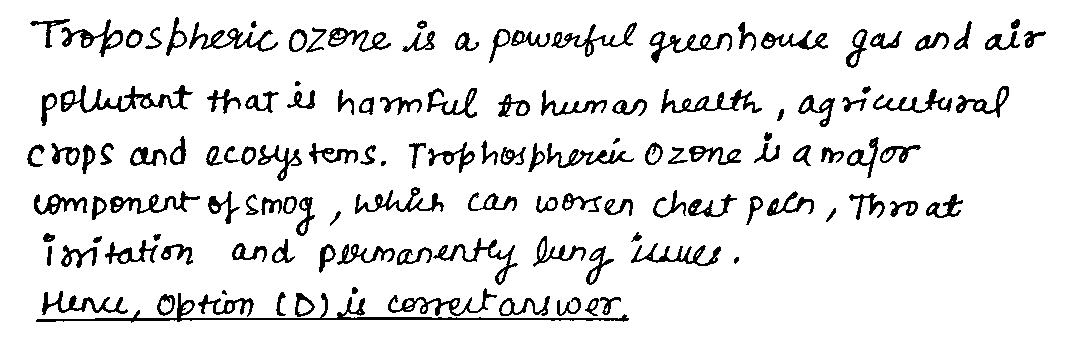 Tropospheric ozone is a powerful greenhouse gas and air
pollutant that is harmful to human health, agricultural
crops and ecosystems. Trophosphereic Ozone is a major
component of smog, which can worsen chest pain, Throat
irritation and permanently lung issues.
Hence, Option (D) is correct answer.